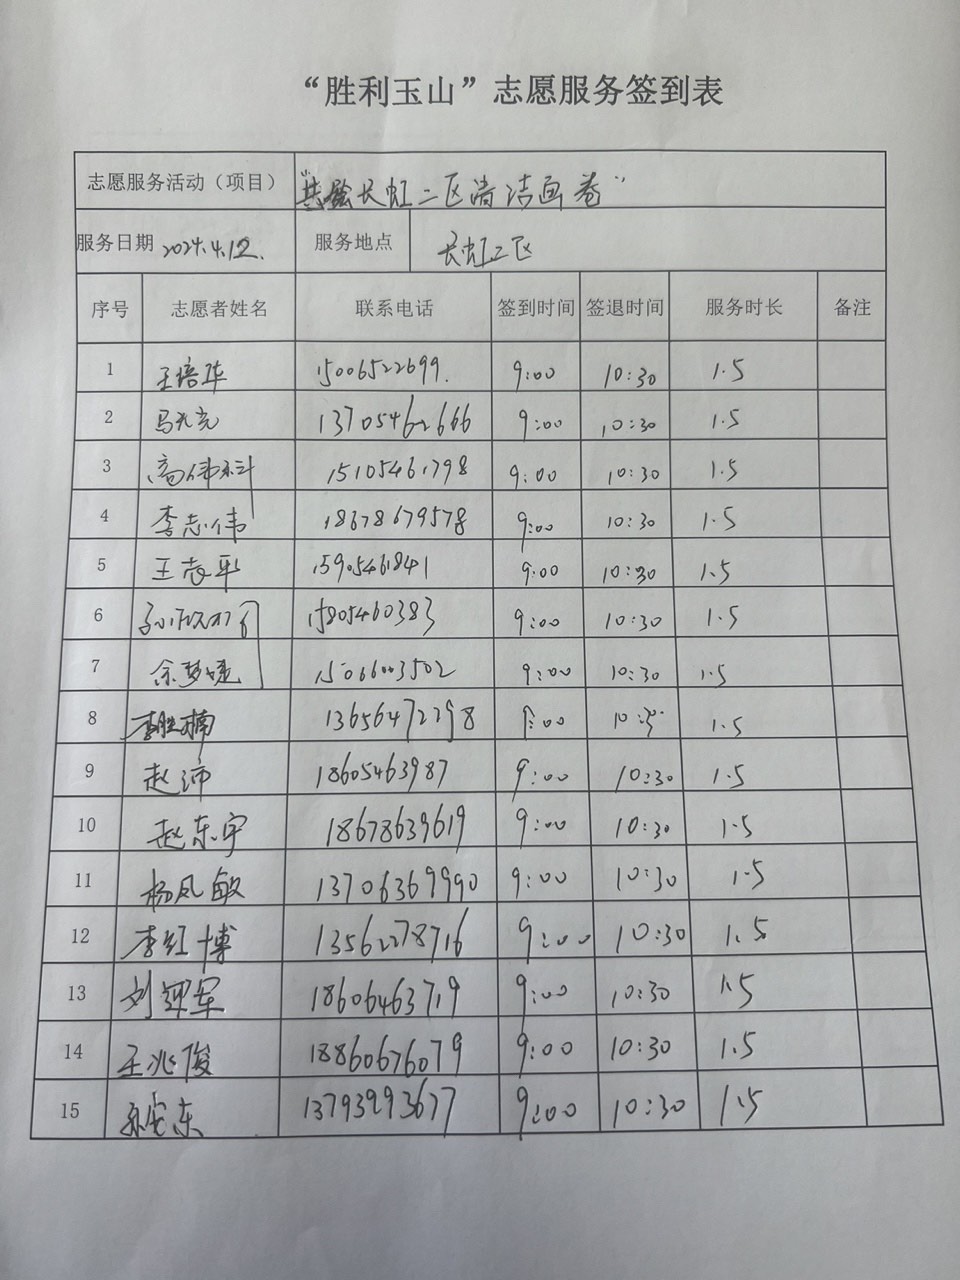 “胜利玉山”志愿服务签到表
志愿服务活动（项目） “共绘长虹二区清洁画卷”
服务日期 2024.4.12. 服务地点 长虹二区
序号 志愿者姓名 联系电话 签到时间 签退时间 服务时长 备注
1 王培华 15006522699. 9:00 10:30 1.5
2 马光亮 13705462666 9:00 10:30 1.5
3 高伟科 15105461798 9:00 10:30 1.5
4 李志伟 18678679578 9:00 10:30 1.5
5 王志平 15905461841 9:00 10:30 1.5
6 15805460383 9:00 10:30 1.5
7 徐梦婕 15066003502 9:00 10:30 1.5
8 李胜楠 13656472298 9:00 10:30 1.5
9 赵沛 18605463987 9:00 10:30 1.5
10 赵东宇 18678639619 9:00 10:30 1.5
11 杨凤敏 13706369990 9:00 10:30 1.5
12 李红博 13562278716 9:00 10:30 1.5
13 刘军 18606463719 9:00 10:30 1.5
14 王兆俊 18860676079 9:00 10:30 1.5
15 孙宝东 13793993677 9:00 10:30 1.5